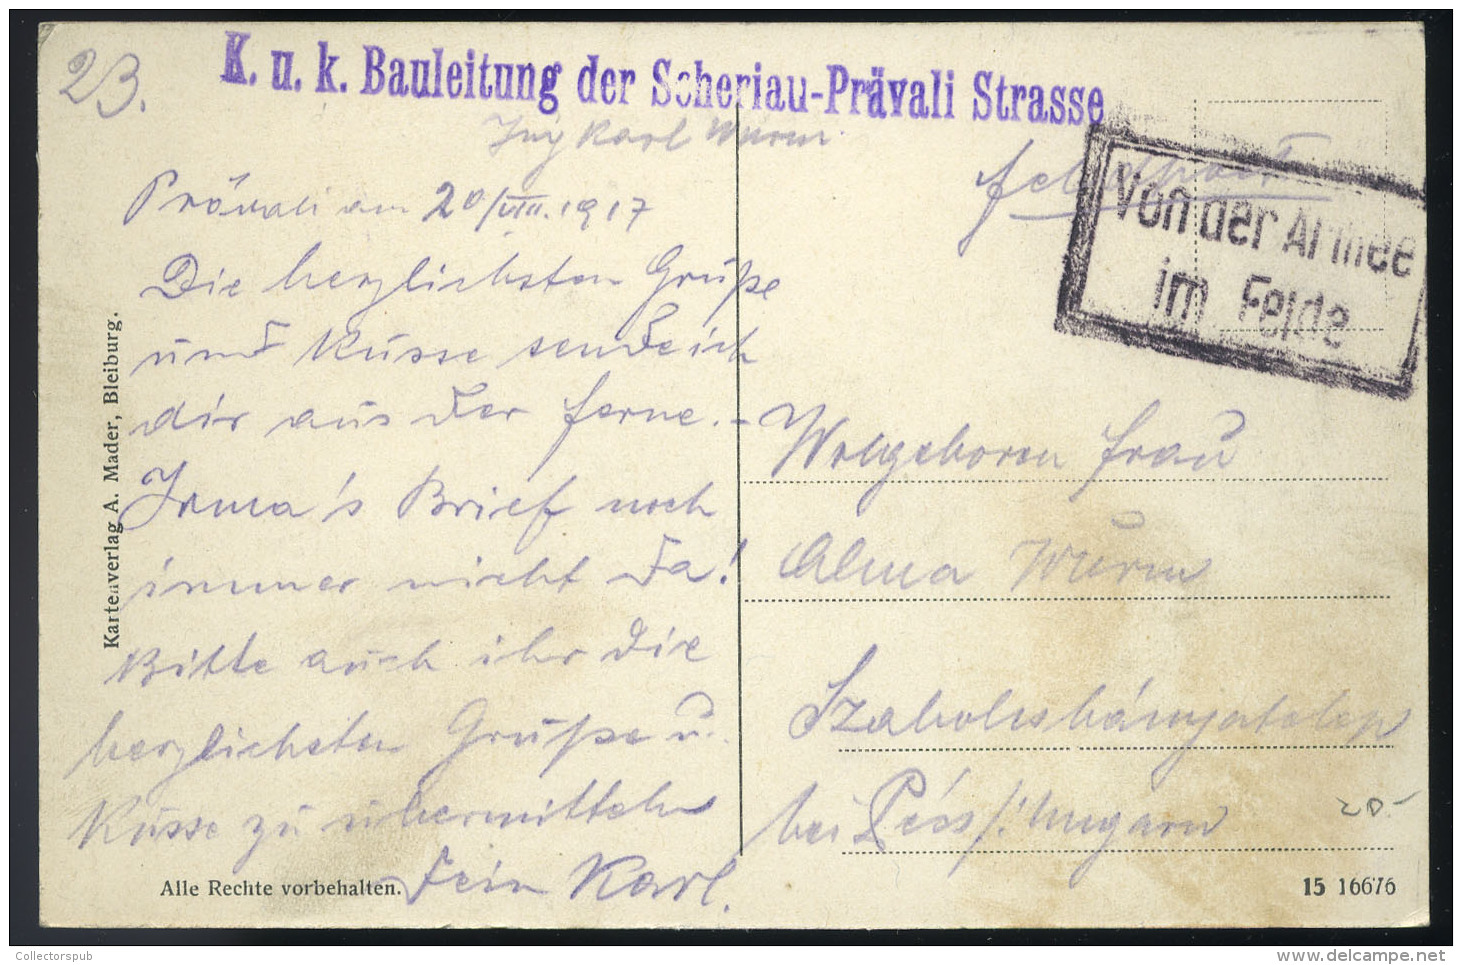 23.
K. u. k. Bauleitung der Scheriau-Prävali Strasse
Ing Karl Wurm
Feldpost
Von der Armee
im Felde
Prävali am 20/VIII. 1917
Die herzlichsten Grüße
und Küsse sende ich
dir aus der ferne. -
Irma's Brief noch
immer nicht da!
Bitte auch ihr die
herzlichsten Grüße u.
Küsse zu übermitteln
Dein Karl.
Wolgeboren Frau
Alma Wurm
Szabolcsbányatelep
bei Pécs /: Ungarn
20.-
Kartenverlag A. Mader, Bleiburg.
Alle Rechte vorbehalten.
15 16676
Collectorspub
delcampe.net